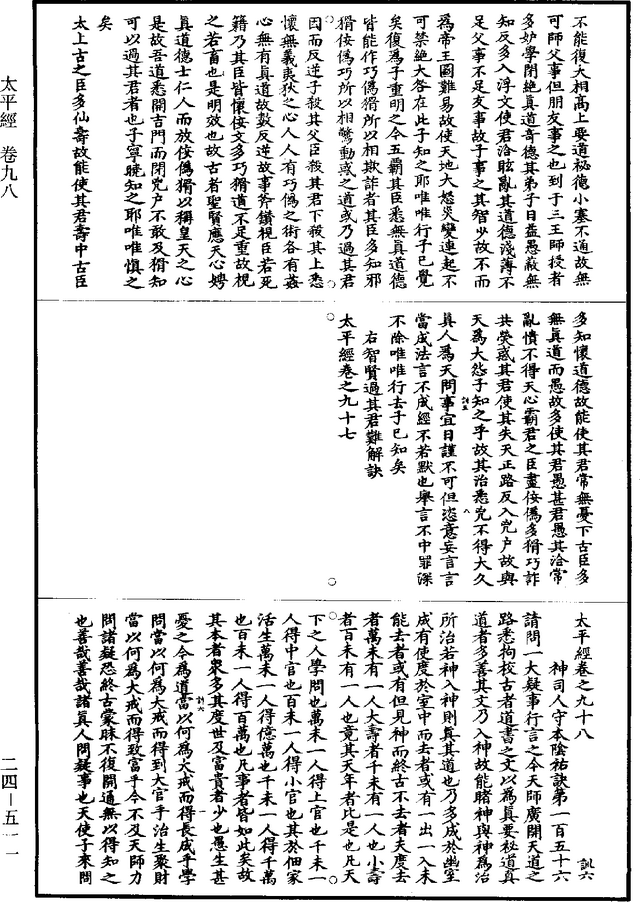 太平經 卷九八
不能復大相高上要道秘德小塞不通故無
可師父事但朋友事之也到于三王師授者
多妒學閉絕真道奇德其弟子日益愚蔽無
知反多入浮文使君治眩亂其道德淺薄不
足父事不足友事故干事之其智少故不而
為帝王圖難易故使天地大怒災變連起不
可禁絕大咎在此子知之耶唯唯行子已覺
矣復為子重明之今五霸其臣悉無真道德
皆能作巧偽猾所以相欺詐者其臣多知邪
猾佞偽巧所以相驚動或之道或乃過其君
因而反逆子殺其父臣殺其君下殺其上悉
懷無義夷狄之心人人有巧偽之術各有姦
心無有真道故數反逆故事斧鑕視臣若死
籍乃其臣皆懷佞文多巧猾道不足重故視
之若畜也是明效也故古者聖賢應天心娉
真道德士仁人而放佞偽猾以稱皇天之心
是故吾道悉開吉門而閉兇戶不敢及猾知
可以過其君者也子寧曉知之耶唯唯慎之
矣
太上古之臣多仙壽故能使其君壽中古臣
多知懷道德故能使其君常無憂下古臣多
無真道而愚故多使其君愚甚君愚其治常
亂憒不得天心霸君之臣盡佞偽多猾巧詐
共熒惑其君使其失天正路反入兇戶故與
天為大怨子知之乎故其治悉兇不得大久
真人為天問事宜日謹不可但恣意妄言言
當成法言不成經不若默也舉言不中罪深
不除唯唯行去子已知矣
右智賢過其君難解訣
太平經卷之九十七
太平經卷之九十八 訓六
神司人守本陰祐訣第一百五十六
請問一大疑事行言之今天師廣開天道之
路悉拘校古者道書之文以為真要秘道真
道者多善其文乃入神故能睹神與神為治
所治若神入神則真其道也乃多成於幽室
成有使度於室中而去者或有一出一入未
能去者或有但見神而終古不去者夫度去
者萬未有一人大壽者千未有一人也小壽
者百未有一人也竟其天年者比是也凡天
下之人學問也萬未一人得上官也千未一
人得中官也百未一人得小官也其於佃家
活生萬未一人得億萬也千未一人得千萬
也百未一人得百萬也凡事者皆如此矣故
其本者眾多其度世及富貴者少也愚生甚
憂之今為道當以何為大戒而得長成乎學
問當以何為大戒而得到大官乎治生聚財
當以何為大戒而得致富乎今不及天師力
問諸疑恐終古蒙昧不復開通無以得知之
也善哉善哉諸真人問疑事也天使子來問
二四－五一一